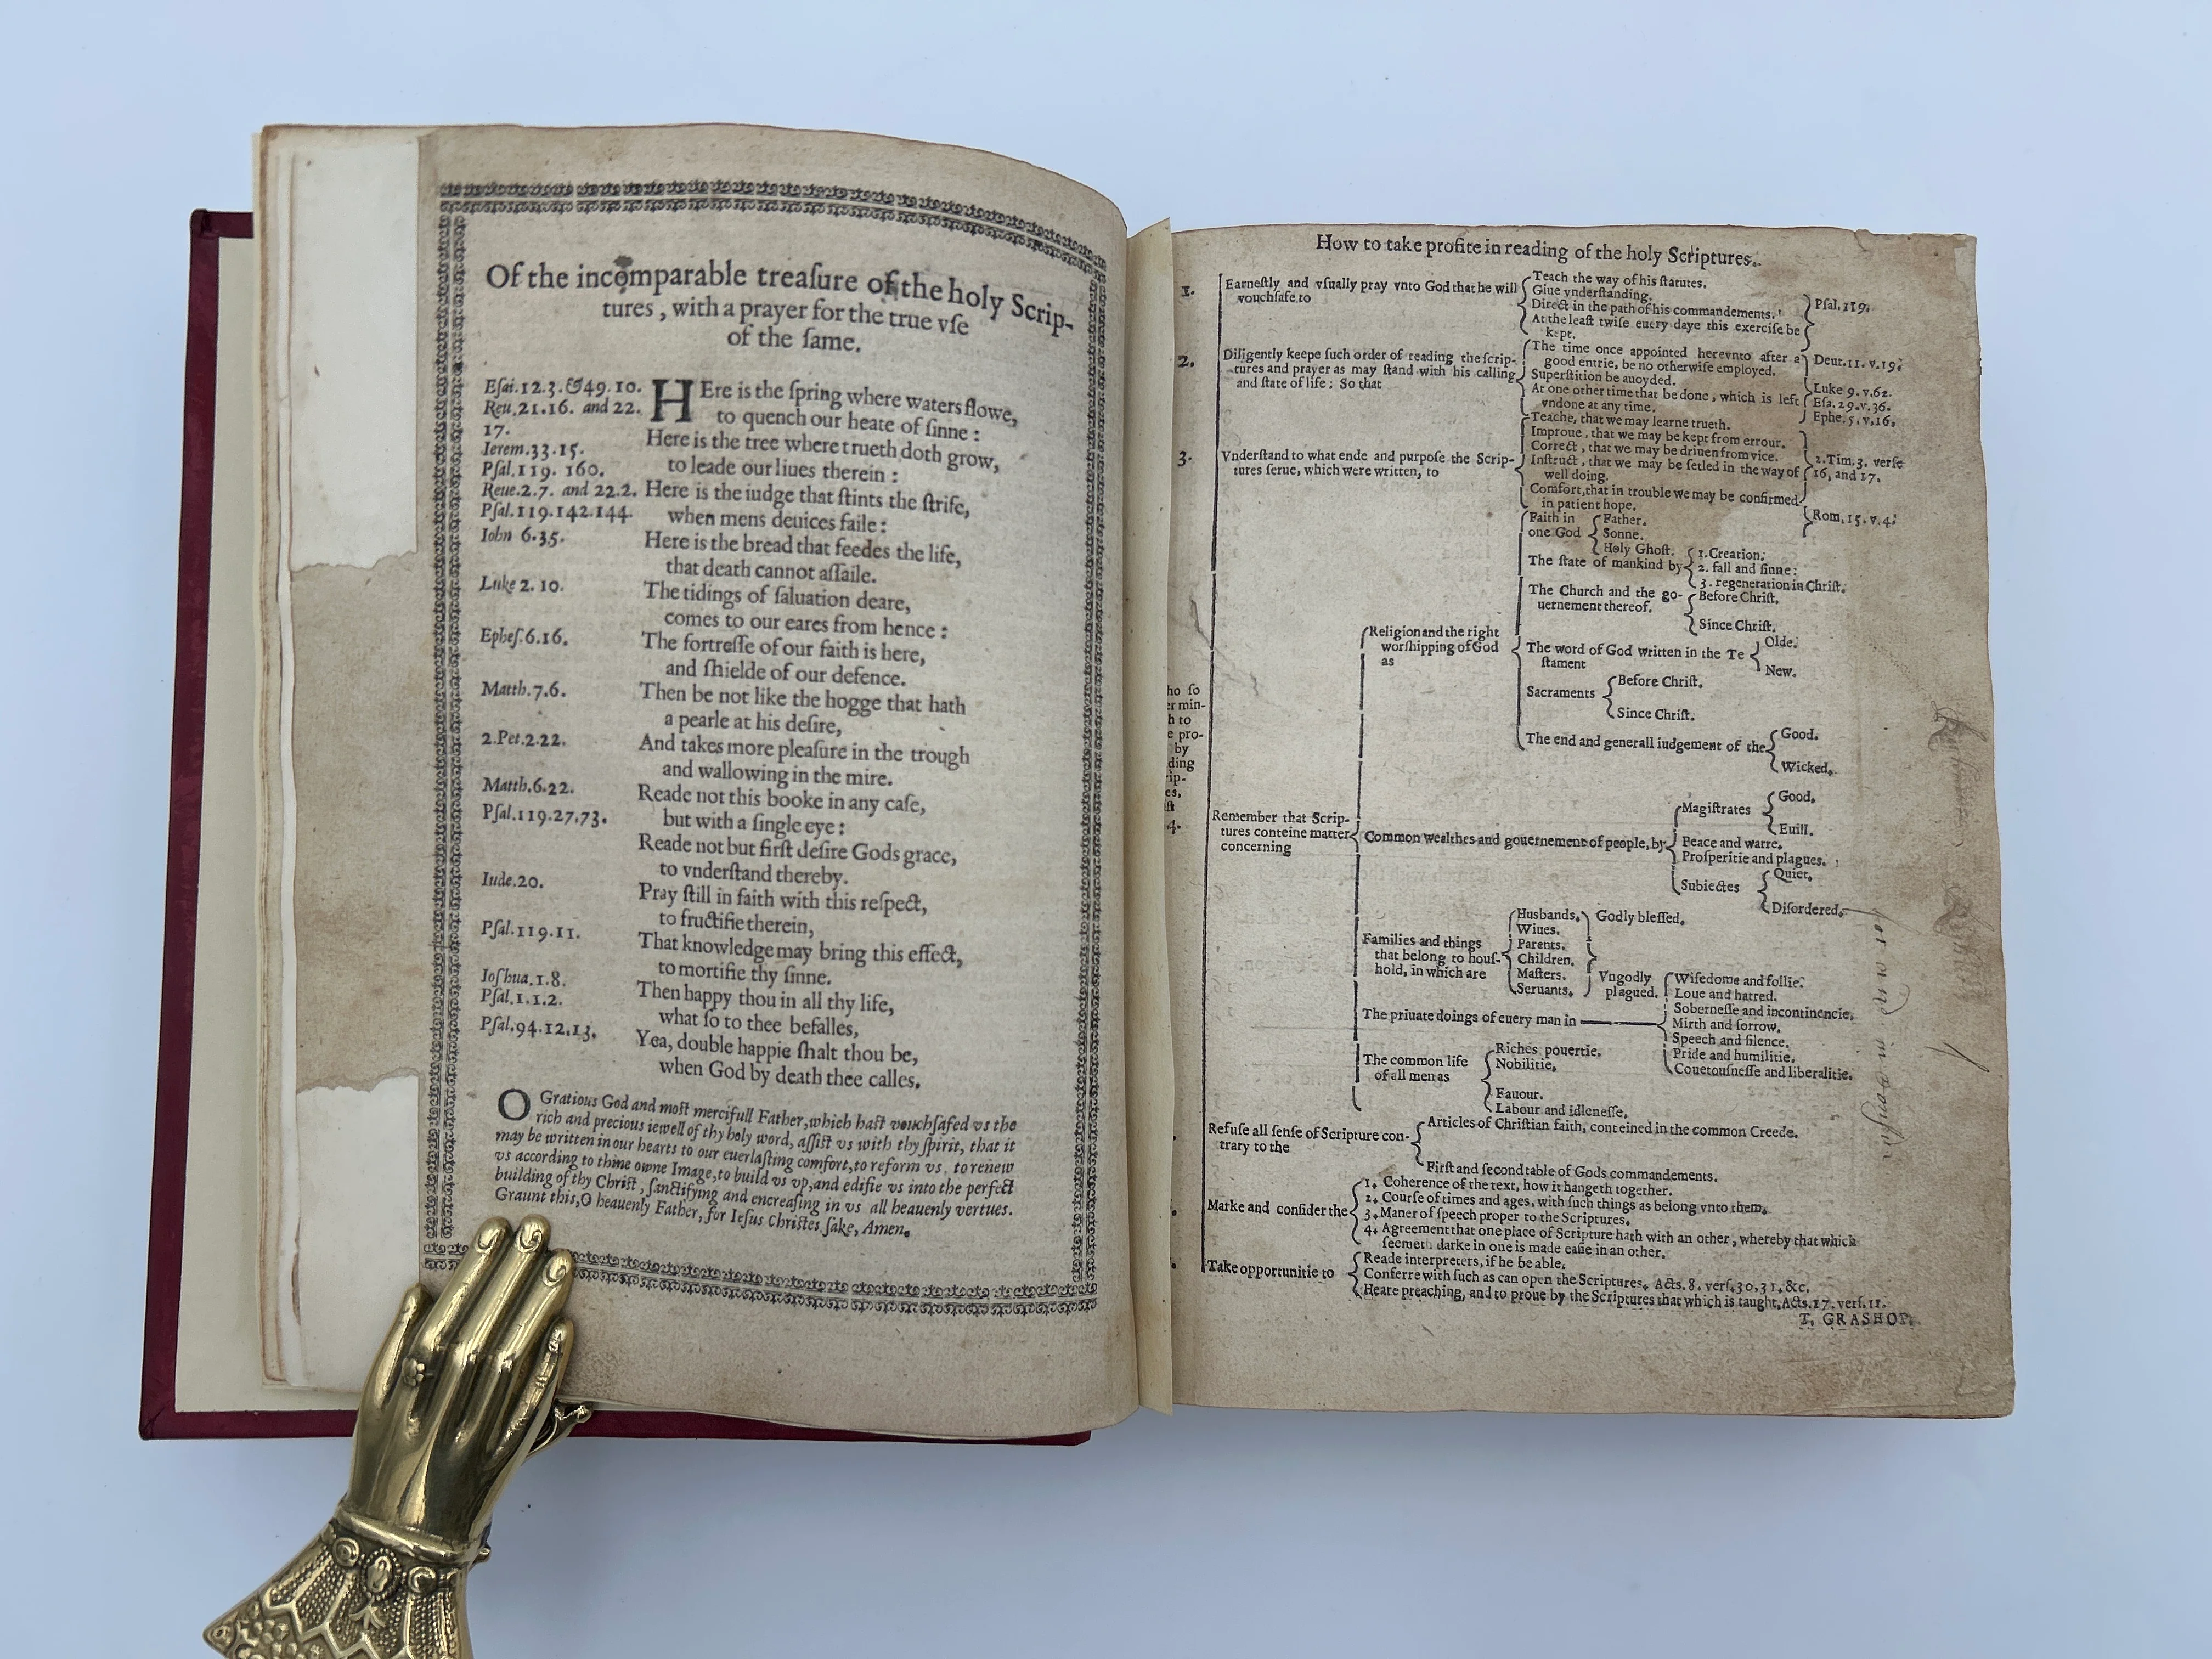 Of the incomparable treaſure of the holy Scrip-
tures, with a prayer for the true vſe
of the ſame.
Eſai.12.3.&49.10.
Reu.21.16. and 22.
17.
Ierem.33.15.
Pſal.119.160.
Reue.2.7. and 22.2.
Pſal.119.142.144.
Iohn 6.35.
Luke 2.10.
Epheſ.6.16.
Matth.7.6.
2.Pet.2.22.
Matth.6.22.
Pſal.119.27,73.
Iude.20.
Pſal.119.11.
Ioſhua.1.8.
Pſal.1.1.2.
Pſal.94.12.13.
HEre is the ſpring where waters flowe,
to quench our heate of ſinne:
Here is the tree where trueth doth grow,
to leade our liues therein:
Here is the iudge that ſtints the ſtrife,
when mens deuices faile:
Here is the bread that feedes the life,
that death cannot aſſaile.
The tidings of ſaluation deare,
comes to our eares from hence:
The fortreſſe of our faith is here,
and ſhielde of our defence.
Then be not like the hogge that hath
a pearle at his deſire,
And takes more pleaſure in the trough
and wallowing in the mire.
Reade not this booke in any caſe,
but with a ſingle eye:
Reade not but firſt deſire Gods grace,
to vnderſtand thereby.
Pray ſtill in faith with this reſpect,
to fructifie therein,
That knowledge may bring this effect,
to mortifie thy ſinne.
Then happy thou in all thy life,
what ſo to thee befalles,
Yea, double happie ſhalt thou be,
when God by death thee calles.
O Gratious God and moſt mercifull Father, which haſt vouchſafed vs the
rich and precious iewell of thy holy word, aſſiſt vs with thy ſpirit, that it
may be written in our hearts to our euerlaſting comfort, to reform vs, to renew
vs according to thine owne Image, to build vs vp, and edifie vs into the perfect
building of thy Chriſt, ſanctifying and encreaſing in vs all heauenly vertues.
Graunt this, O heauenly Father, for Ieſus Chriſtes ſake, Amen.
How to take profite in reading of the holy Scriptures.
1. Earneſtly and vſually pray vnto God that he will
vouchſafe to
Teach the way of his ſtatutes.
Giue vnderſtanding.
Direct in the path of his commandements.
Pſal.119.
At the leaſt twiſe euery daye this exerciſe be
kept.
2. Diligently keepe ſuch order of reading the ſcrip-
tures and prayer as may ſtand with his calling
and ſtate of life: So that
The time once appointed hereunto after a
good entrie, be no otherwiſe employed.
Superſtition be auoyded.
At one other time that be done, which is left
vndone at any time.
Deut.11.v.19.
Luke 9.v.62.
Eſa.29.v.36.
Ephe.5.v.16.
3. Vnderſtand to what ende and purpoſe the Scrip-
tures ſerue, which were written, to
Teache, that we may learne trueth.
Improue, that we may be kept from errour.
Correct, that we may be driuen from vice.
Inſtruct, that we may be ſetled in the way of
well doing.
Comfort, that in trouble we may be confirmed
in patient hope.
2.Tim.3. verſe
16, and 17.
Rom.15.v.4.
ho ſo
er min-
h to
e pro-
by
ding
rip-
es,
ſt
4. Remember that Scrip-
tures conteine matter
concerning
Religion and the right
worſhipping of God
as
Faith in
one God
Father.
Sonne.
Holy Ghoſt.
The ſtate of mankind by
1. Creation.
2. fall and ſinne:
3. regeneration in Chriſt.
The Church and the go-
uernement thereof.
Before Chriſt.
Since Chriſt.
The word of God written in the Te
ſtament
Olde.
New.
Sacraments
Before Chriſt.
Since Chriſt.
The end and generall iudgement of the
Good.
Wicked.
Common wealthes and gouernement of people, by
Magiſtrates
Good.
Euill.
Peace and warre.
Proſperitie and plagues.
Subiectes
Quiet.
Diſordered.
Families and things
that belong to houſ-
hold, in which are
Husbands.
Wiues.
Parents.
Children.
Maſters.
Seruants.
Godly bleſſed.
Vngodly
plagued.
The priuate doings of euery man in
Wiſedome and follie.
Loue and hatred.
Soberneſſe and incontinencie.
Mirth and ſorrow.
Speech and ſilence.
Pride and humilitie.
Couetouſneſſe and liberalitie.
The common life
of all men as
Riches pouertie.
Nobilitie.
Fauour.
Labour and idleneſſe.
Refuſe all ſenſe of Scripture con-
trary to the
Articles of Chriſtian faith, conteined in the common Creede.
Firſt and ſecond table of Gods commandements.
Marke and conſider the
1. Coherence of the text, how it hangeth together.
2. Courſe of times and ages, with ſuch things as belong vnto them.
3. Maner of ſpeech proper to the Scriptures.
4. Agreement that one place of Scripture hath with an other, whereby that which
ſeemeth darke in one is made eaſie in an other.
Take opportunitie to
Reade interpreters, if he be able.
Conferre with ſuch as can open the Scriptures. Acts.8. verſ.30,31,&c.
Heare preaching, and to proue by the Scriptures that which is taught, Acts.17. verſ.11.
T. GRASHOP.